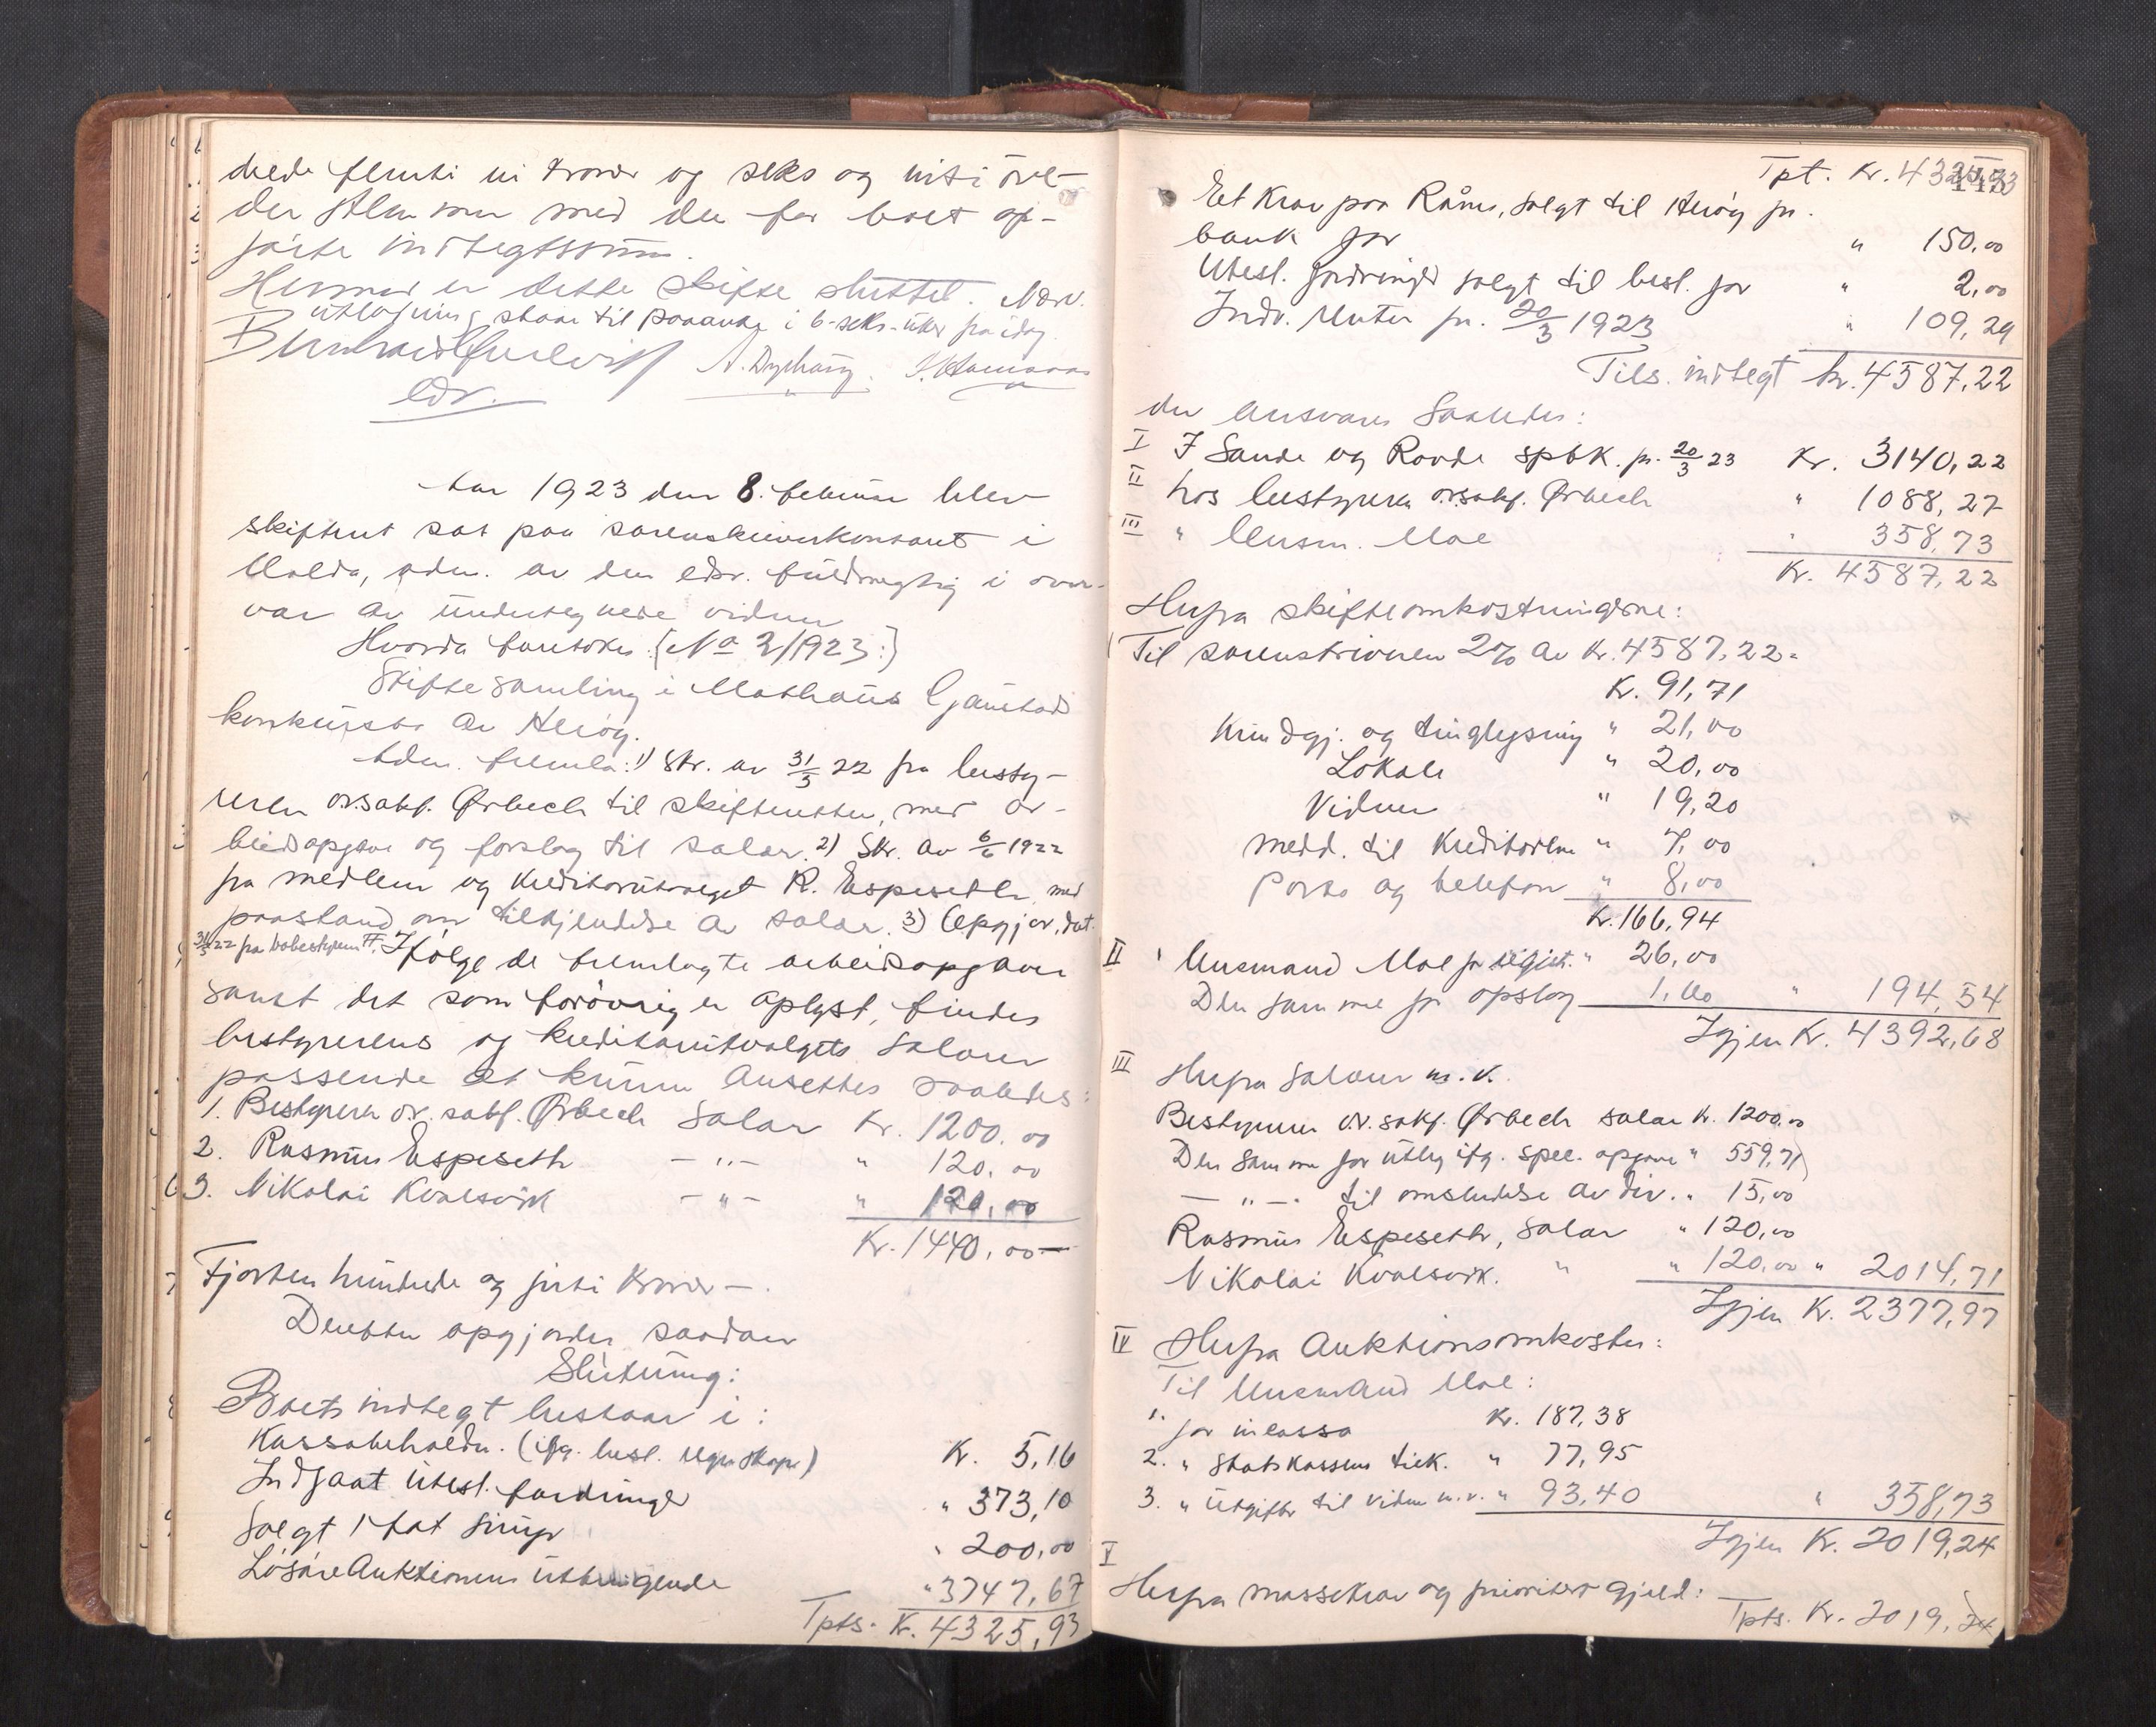 drede flruti ni kroner og seks og niti öre -
der stemmer med den for boet op-
förte indtegtssum.
Hermed er dette skifte sluttet. Nærv.
utlodning staar til paaanke i 6-seks-uker fra idag.
A. Dyrhaug. S. Hamanas
edv.
Aar 1923 den 8. februar blev
skifteret sat paa sorenskriverkontoret i
Volda, adm. av den edsv. fuldmegtig i over-
vær av undertegnede vidner
Hvorda foretokes: {No 2/1923:}
Skiftesamling i Mathæus Gjærstads
konkursbo av Herøy.
Adm. fremla: 1) Skr. av 31/5 22 fra besty-
reren o.r.sakf. Ørbech til skifteretten, med ar-
beidsopgave og forslag til salær. 2) Skr. av 6/6 1922
fra medlem og kreditorutvalget R. Espeseth med
paastand om tilkjendelse av salær. 3) Opgjør, dat.
31/5 22 fra bobestyreren. Ifölge de fremlagte arbeidsopgaver
samt det som forövrig er oplyst, findes
bestyrerens og kreditorutvalgets salærer
passende at kunne ansettes saaledes:
1. Bestyreren o.r. sakf. Ørbech salær Kr. 1200.00
2. Rasmus Espeseth — " — " 120.00
3. Nikolai Kvalsvik — " — " 120,00
Kr. 1440,00 —
Fjorten hundrede og firti kroner —.
Deretter opgjordes saadan
Slutning:
Boets indtegt bestaar i:
Kassabeholdn. (ifg. best. regnskap) Kr. 5,16
Indgaat utest. fordringer " 373,10
Solgt 1 fat sirup " 200,00
Lösöreauktionens utbringende " 3747,67
Tpts. Kr. 4325,93
Tpt. Kr. 4325,93
Et krav paa Råms, solgt til Herøy pr.
bank for " 150,00
Utest. fordringer solgt til best. for " 2,00
Indv. renter pr. 20/3 1923 " 109,29
Tils. indtegt kr. 4587,22
der ansvares saaledes:
I I Sande og Rovde spbk. pr. 20/3 23 Kr. 3140,22
II hos bestyreren o.r.sakf. Ørbech " 1088,27
III " lensm. Moe " 358,73
Kr. 4587,22
Herfra skifteomkostningerne:
Til sorenskriveren 2% av Kr. 4587,22 =
Kr. 91,71
Kundgj. og tinglysning " 21,00
Lokale " 20,00
Vidner " 19,20
Medd. til kreditorerne " 7,00
Porto og telefon " 8,00
Kr. 166,94
II Lensmand Moe for registr. " 26,00
Den samme for opslag 1,60 " 194,54
Igjen Kr. 4392,68
III Herfra salærer m.v.
Bestyreren o.r. sakf. Ørbech salær Kr. 1200,00
Den samme for utlæg ifg. spec. opgave " 559,71
— " — til omsendelse av div. " 15,00
Rasmus Espeseth, salær " 120,00
Nikolai Kvalsvik. " " 120,00 " 2014,71
Igjen Kr. 2377,97
IV Herfra Auktionsomkoster:
Til lensmand Moe:
1. for incasso Kr. 187,38
2. " Statskassens tick. " 77,95
3. " Utgifter til vidner m.v. " 93,40 " 358,73
Igjen Kr. 2019,24
V
Herfra massekrav og prioritert gjeld:
Tpts. Kr. 2019,24